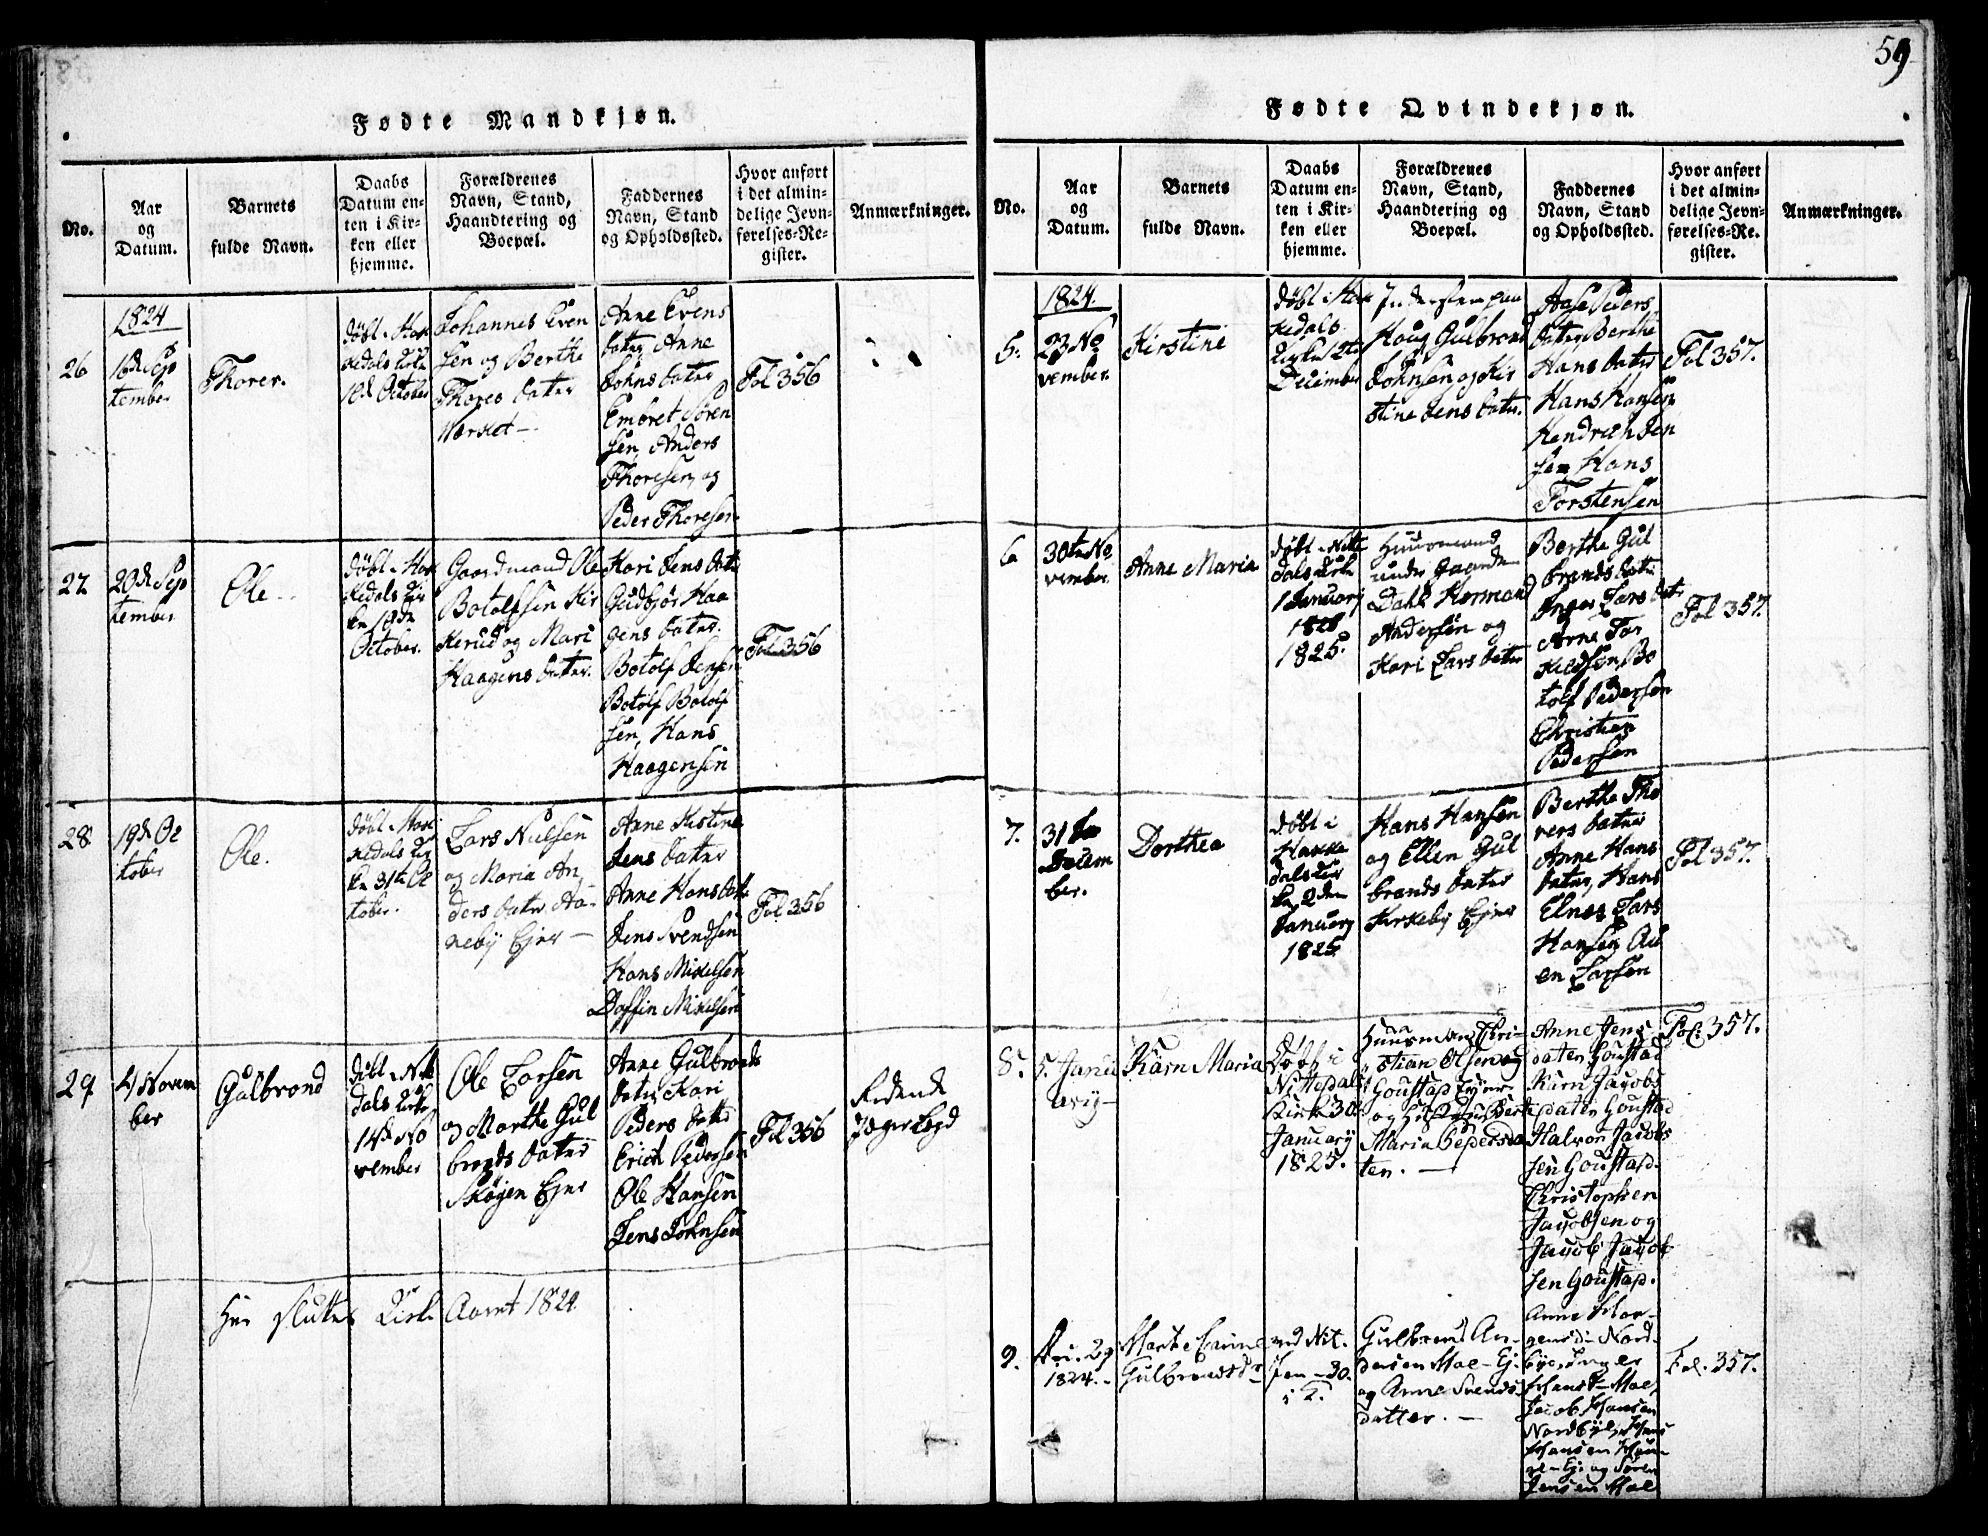 59
Fødte Mandkjøn.
No.
Aar
og
Datum.
Barnets
fulde Navn.
Daabs
Datum en-
ten i Kir-
ken eller
hjemme.
Forældrenes
Navn, Stand,
Haandtering og
Boepæl.
Faddernes
Navn, Stand
og Opholdssted.
Hvor anført
i det almin-
delige Jevn-
førelses-Re-
gister.
Anmærkninger.
26
1824
16de Sep
tember
Thorer.
døbt i Hak
kedals Kirke
10de October
Johannes Even
sen og Berthe
Thores datter
Anne Evens
datter Anne
Johns datter
Embret Sören
sen, Anders
Thoresen, og
Peder Thoresen
Fol 356
27
20de Sep
tember
Ole
døbt i Hak
kedals Kir
ke 10de
October.
Gaardmand Ole
Botolfsen Kir
kerud og Mari
Haagens datter.
Kari Jens datter
Gudbjör Haa
gens datter.
Botolf Jensen
Botolf Botolf
sen, Hans
Haagensen
Fol 356
28
19de Oc
tober
Ole.
døbt i Hak
kedals Kir
ke 31te Oc
tober.
Lars Nielsen
og Maria An
ders datter Aa-
neby Ejer —
Anne Kistine
Jens datter
Anne Hans datter
Jens Svendsen
Hans Mikelsen
Daffin Mikelsen
Fol 356
29
4 Novem
ber
Gulbrand
døbt i Nitte
dals Kirke
14de No
vember
Ole Larsen
og Marthe Gul
brands datter
Skögen Ejer
Anne Gulbrands
datter Kari
Peders datter
Erich Pedersen
Ole Hansen
Jens Johnsen
Fol 356
Ridende
Jæger
Her slutter Kirke Aaret 1824.
Fødte Qvindekjøn.
No.
Aar
og
Datum.
Barnets
fulde Navn.
Daabs
Datum en-
ten i Kir-
ken eller
hjemme.
Forældrenes
Navn, Stand,
Haandtering og
Boepæl.
Faddernes
Navn, Stand
og Opholdssted.
Hvor anført
i det almin-
delige Jevn-
førelses-Re-
gister.
Anmærkninger.
5.
1824.
23 No
vember.
Kirstine
døbt i Hak
kedals
Kirke 2de
December
Inderstem paa
Houg Gulbrand
Johnsen, og Kir
stine Jens datter.
Aase Peders
datter, Berthe
Hans datter
Hans Hansen
Hendrich Jen
sen Hans
Torstensen
Fol 357.
6
30te No
vember
Anne Maria
døbt i Nitte
dals Kirke
1 January
1825.
Huusmand
under Gaarden
Dahl Herman
Andersen og
Kari Lars datter
Berthe Gul
brands datter
Inger Lars datter
Arne Tor
kildsen, Bo
tolf Pedersen
Christian
Pedersen
Fol 357.
7.
31
Decem
ber.
Dorthea
døbt i
Hakke
dals Kir
ke 2den
January
1825
Hans Hansen
og Ellen Gul
brands datter
Kirkeby Ejer
Berthe Tho
rers datter
Anne Hans
datter, Hans
Elnes Lars
Hansen
en Larsen
Fol 357.
8.
5. Janu
ary —
Karn Maria
Døbt i
Nittedals
Kirke 30
January
1825.
Huusmand Chri-
stian Olsen og
Goustad Ejer
og
Maria Pedersda
ter. —
Anne Jens
datter Goustad
Karn Jacobs
datter Goustad
Halvor Jacobs
sen Goustad.
Christophen
Jacobsen og
Jacob Jacob
sen Goustad.
Fol: 357.
9.
29
1824.
Marthe
Gulbrandsdr
ved Nit.
30.
Gulbrand An-
dersen Moe Ej.
og Anne Svends
datter. —
Anne Hlor-
Nord-
bye, Inger
Moe,
Jacob Hansen
Nordbye, Hans
Hansen
Ej. og Søren
Jensen Moe
Fol. 357.